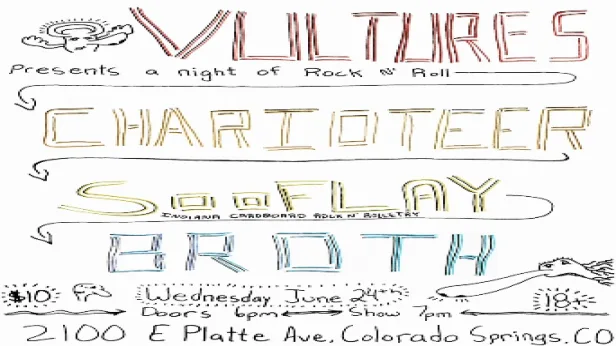 VULTURES
Presents a night of Rock N' Roll
CHARIOTEER
SooFLAY
INDIANA CARDBOARD ROCK N' ROLLTRY
BROTH
$10 Wednesday June 24th 18+
Doors 6pm Show 7pm
2100 E Platte Ave, Colorado Springs, CO